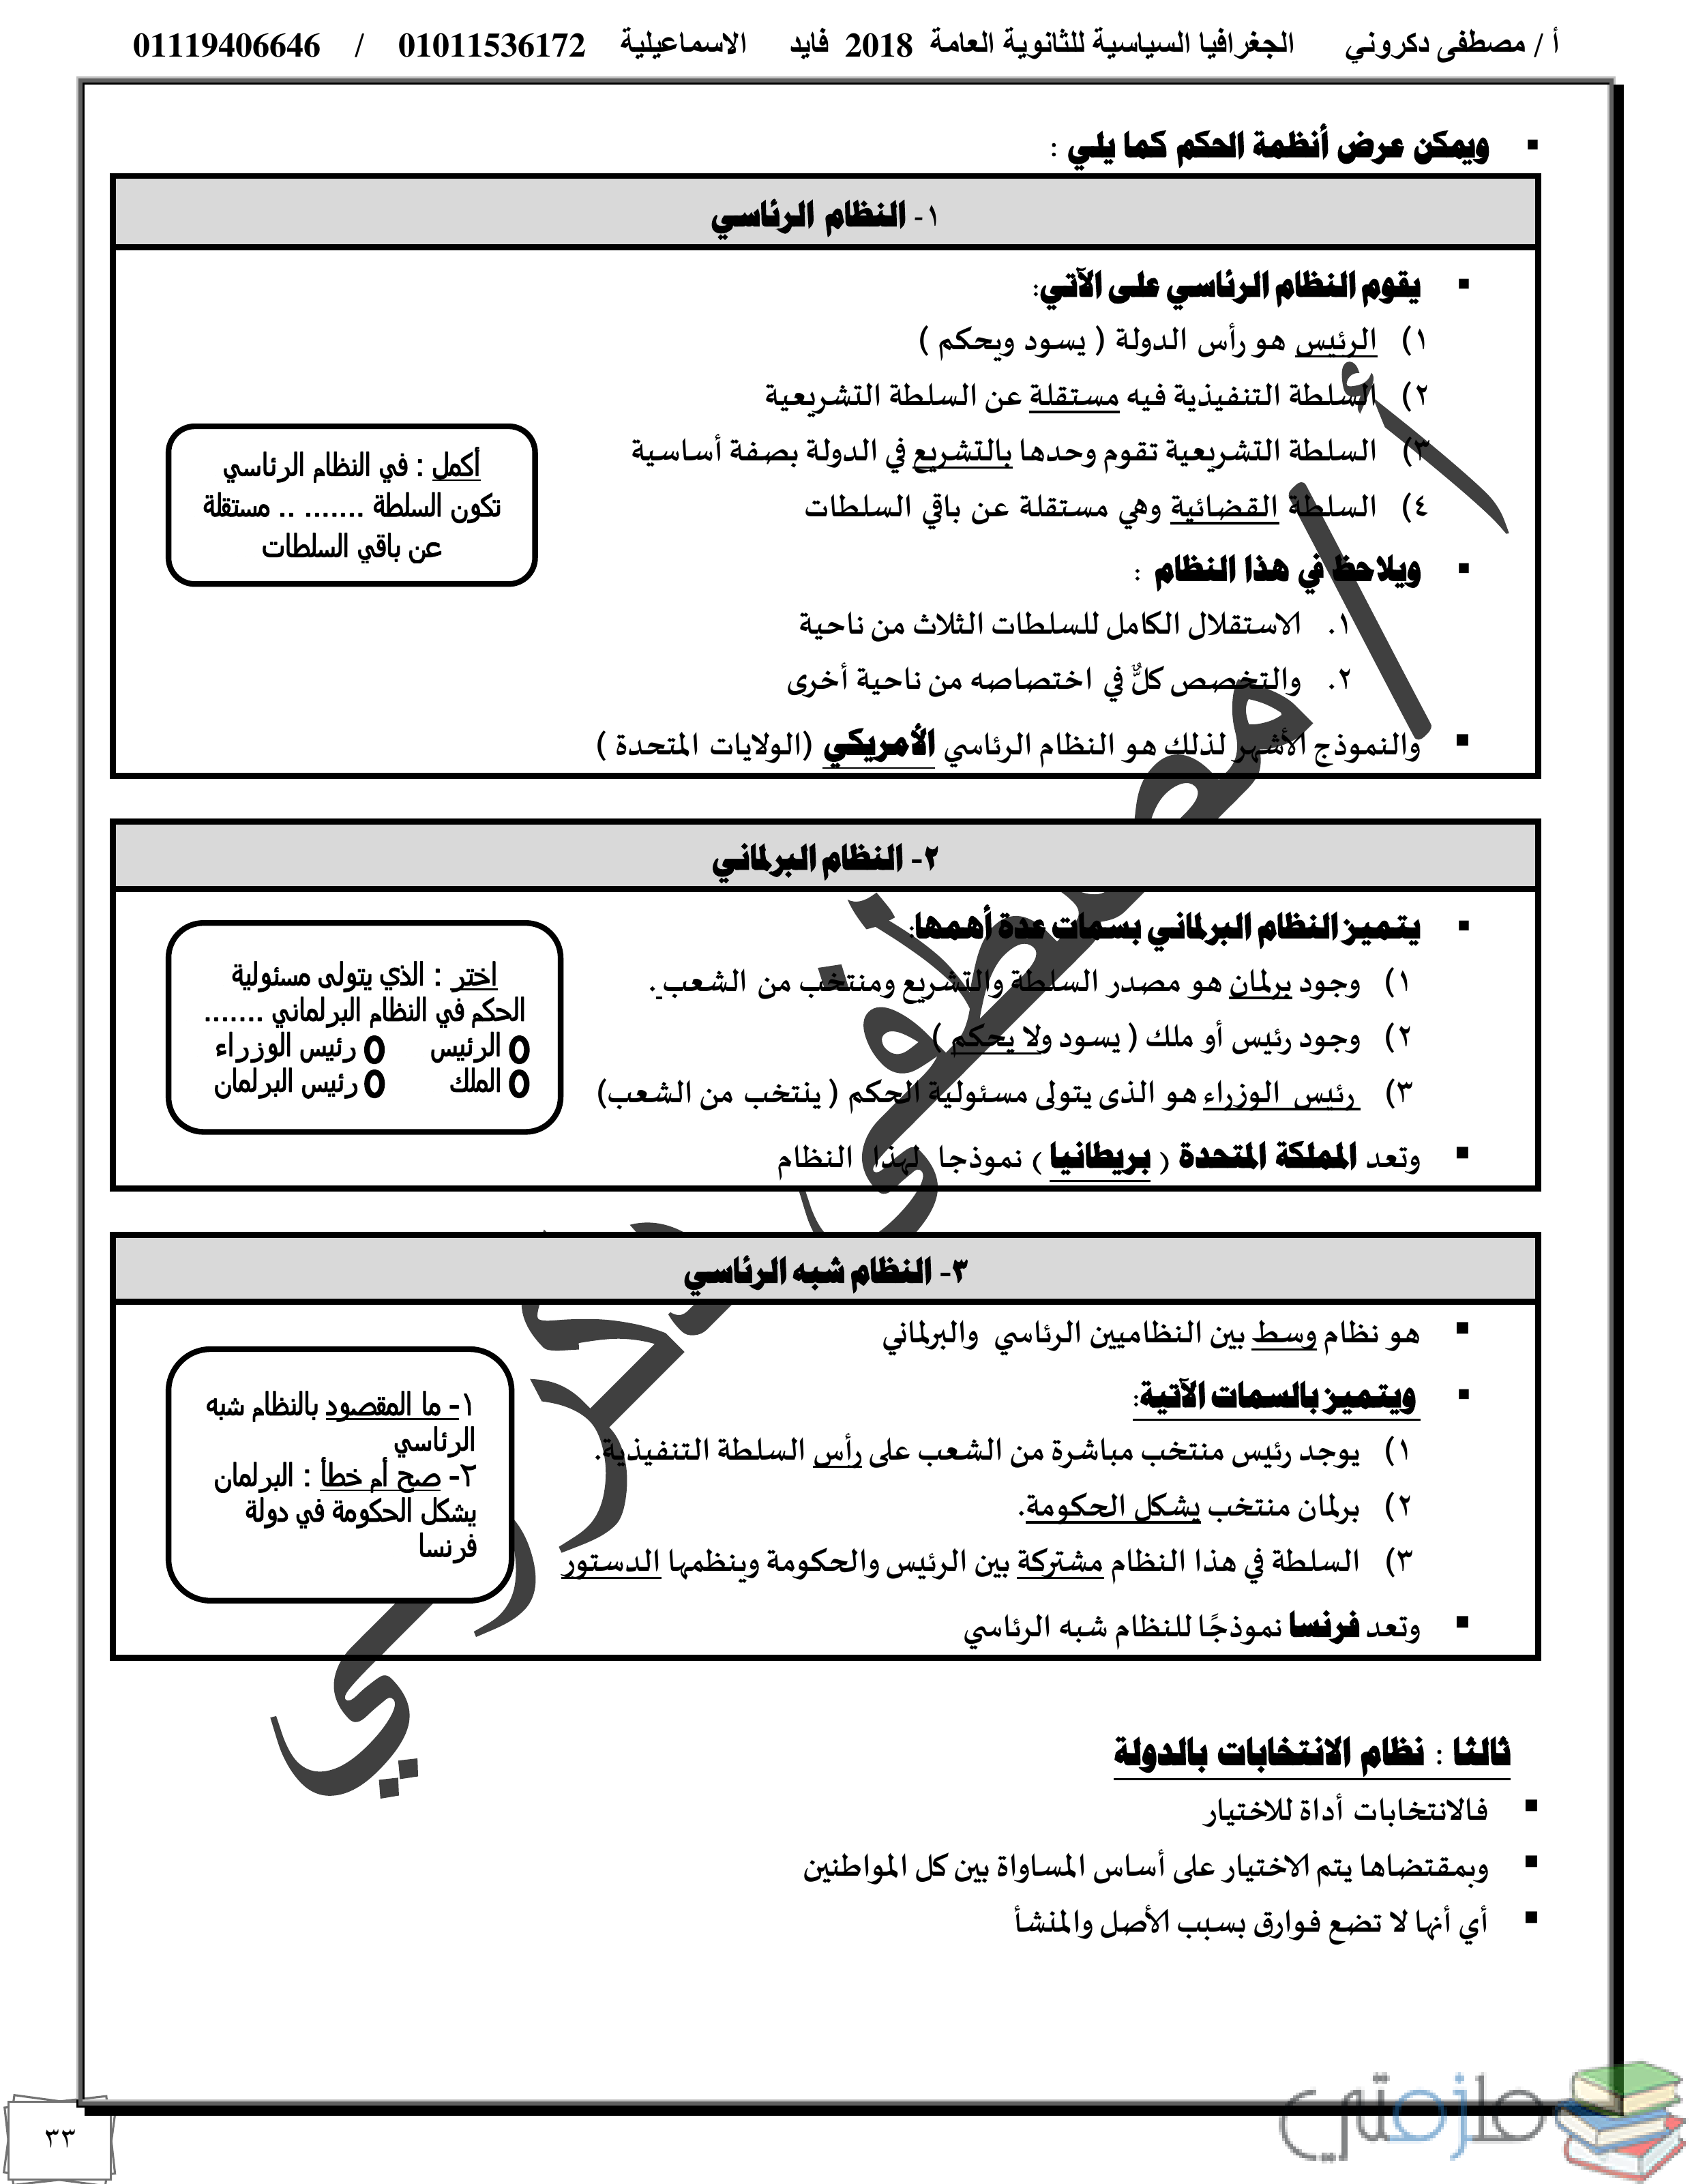 أ / مصطفى دكروني الجغرافيا السياسية للثانوية العامة 2018 فايد الاسماعيلية 01011536172 / 01119406646
▪ ويمكن عرض أنظمة الحكم كما يلي :
١- النظام الرئاسي
▪ يقوم النظام الرئاسي على الآتي:
١) الرئيس هو رأس الدولة ( يسود ويحكم )
٢) السلطة التنفيذية فيه مستقلة عن السلطة التشريعية
٣) السلطة التشريعية تقوم وحدها بالتشريع في الدولة بصفة أساسية
٤) السلطة القضائية وهي مستقلة عن باقي السلطات
أكمل : في النظام الرئاسي
تكون السلطة ....... .. مستقلة
عن باقي السلطات
▪ ويلاحظ في هذا النظام :
١. الاستقلال الكامل للسلطات الثلاث من ناحية
٢. والتخصص كلٌّ في اختصاصه من ناحية أخرى
▪ والنموذج الأشهر لذلك هو النظام الرئاسي الأمريكي (الولايات المتحدة )
٢- النظام البرلماني
▪ يتميز النظام البرلماني بسمات عدة أهمها:
١) وجود برلمان هو مصدر السلطة والتشريع ومنتخب من الشعب .
٢) وجود رئيس أو ملك ( يسود ولا يحكم )
٣) رئيس الوزراء هو الذى يتولى مسئولية الحكم ( ينتخب من الشعب)
▪ وتعد المملكة المتحدة ( بريطانيا ) نموذجا لهذا النظام
اختر : الذي يتولى مسئولية
الحكم في النظام البرلماني .......
O الرئيس O رئيس الوزراء
O الملك O رئيس البرلمان
٣- النظام شبه الرئاسي
▪ هو نظام وسط بين النظاميين الرئاسي والبرلماني
▪ ويتميز بالسمات الآتية:
١) يوجد رئيس منتخب مباشرة من الشعب على رأس السلطة التنفيذية.
٢) برلمان منتخب يشكل الحكومة.
٣) السلطة في هذا النظام مشتركة بين الرئيس والحكومة وينظمها الدستور
▪ وتعد فرنسا نموذجًا للنظام شبه الرئاسي
١- ما المقصود بالنظام شبه
الرئاسي
٢- صح أم خطأ : البرلمان
يشكل الحكومة في دولة
فرنسا
ثالثا : نظام الانتخابات بالدولة
▪ فالانتخابات أداة للاختيار
▪ وبمقتضاها يتم الاختيار على أساس المساواة بين كل المواطنين
▪ أي أنها لا تضع فوارق بسبب الأصل والمنشأ
أ / مصطفى دكروني
ملزمتي
٣٣